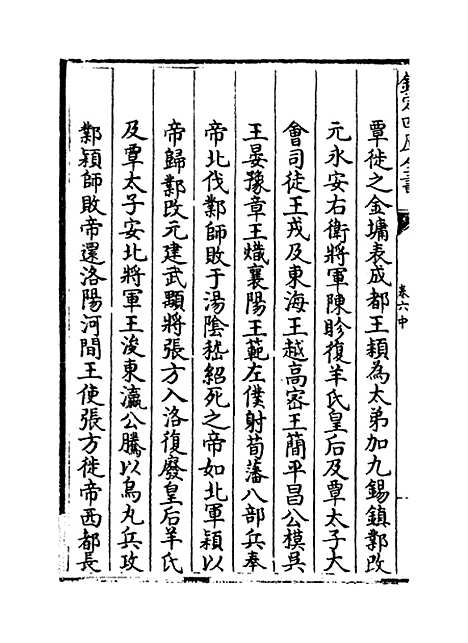 欽定四庫全書
卷六中
覃徙之金墉表成都王穎為太弟加九錫鎮鄴改
元永安右衛將軍陳眕復羊氏皇后及覃太子大
會司徒王戎及東海王越高密王簡平昌公模吳
王晏豫章王熾襄陽王範左僕射荀藩八部兵奉
帝北伐鄴師敗于湯陰嵇紹死之帝如北軍穎以
帝歸鄴改元建武顒將張方入洛復廢皇后羊氏
及覃太子安北將軍王浚東瀛公騰以烏丸兵攻
鄴穎師敗帝還洛陽河間王使張方徙帝西都長